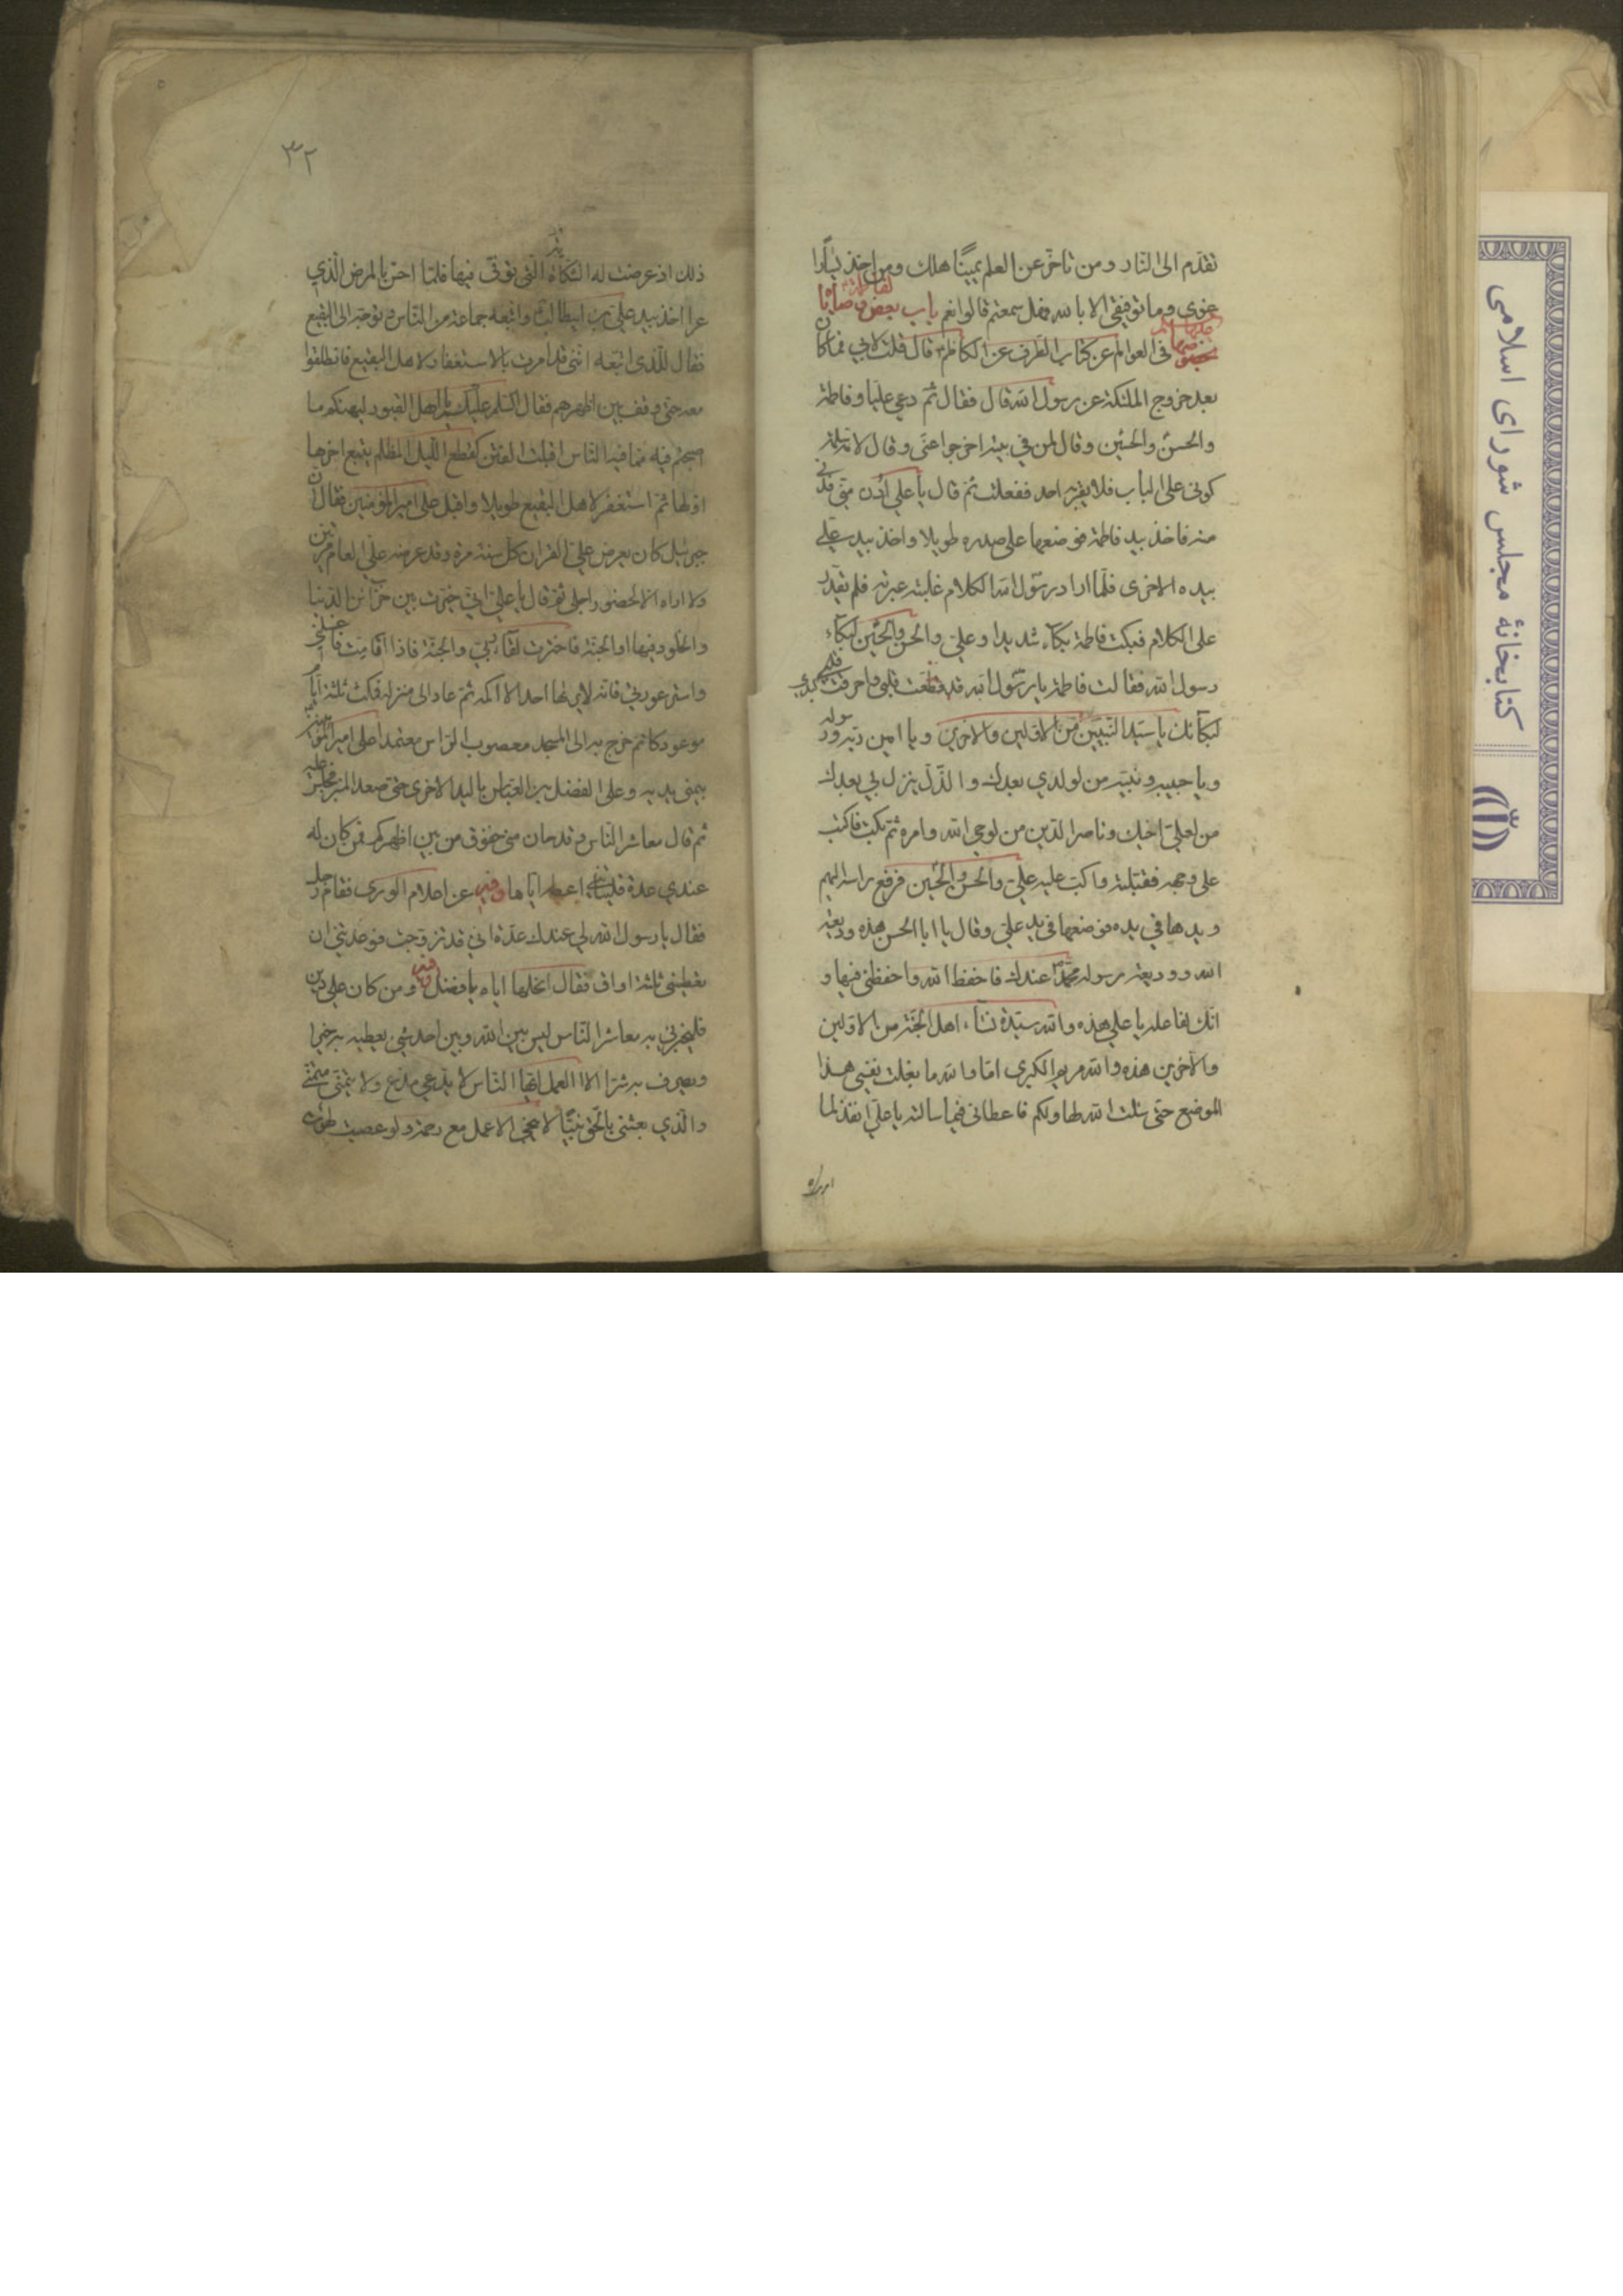 تقدم الى النار ومن تاخر عن العلم يمينا هلك ومن اخذ يسارا
غوى وما توفيقى الا بالله فهل سمعتم قالوا نعم باب بعض وصاياه
لفاطمة
فى العوالم عن كتاب الطرف عن الكاظم قال قلت لابي فما كان
بعد خروج الملئكة عن رسول الله قال فقال ثم دعى عليا وفاطمة
والحسن والحسين وقال لمن في بيته اخرجوا عنى وقال لام سلمة
كونى على الباب فلا يقربه احد ففعلت ثم قال يا علي ادن منى فدنى
منه فاخذ بيد فاطمة فوضعها على صدره طويلا واخذ بيد علي
بيده الاخرى فلما اراد رسول الله الكلام غلبته عبرته فلم يقدر
على الكلام فبكت فاطمة بكاء شديدا وعلي والحسن والحسين لبكاء
رسول الله فقالت فاطمة يا رسول الله قد قطعت قلبى واحرقت كبدي
لبكائك يا سيد النبيين من الاولين والاخرين ويا امين ربه ورسوله
ويا حبيبه ونبيه من لولدي بعدك والذل ينزل بي بعدك
من لعلي اخيك وناصر الدين من لوحي الله وامره ثم بكت فاكبت
على وجهه فقبلته واكب عليه علي والحسن والحسين فرفع راسه اليهم
ويدها في يده فوضعها فى يد علي وقال يا ابا الحسن هذه وديعة
الله ووديعة رسوله محمد عندك فاحفظ الله واحفظنى فيها و
انك لفاعله يا علي هذه والله سيدة نساء اهل الجنة من الاولين
والاخرين هذه والله مريم الكبرى اما والله ما بلغت نفسى هذا
الموضع حتى سئلت الله لها ولكم فاعطانى فيما سالته يا علي انفذ لما
امرك
٣٢
ذلك اذ عرضت له الشكاة التى توفى فيها فلما احس بالمرض الذي
عرا اخذ بيد علي بن ابيطالب واتبعه جماعة من الناس وتوجه الى البقيع
فقال للذى اتبعه اننى قد امرت بالاستغفار لاهل البقيع فانطلقوا
معه حتى وقف بين اظهرهم فقال السلم عليكم يا اهل القبور ليهنكم ما
اصبحتم فيه مما فيه الناس اقبلت الفتن كقطع الليل المظلم يتبع اخرها
اولها ثم استغفر لاهل البقيع طويلا واقبل على امير المؤمنين فقال ان
جبرئيل كان يعرض علي القران كل سنة مرة وقد عرضه علي العام مرتين
ولا اراه الا لحضور اجلى ثم قال يا علي انى خيرت بين خزائن الدنيا
والخلود فيها او الجنة فاخترت لقاء ربي والجنة فاذا انا مت فاغسلنى
واستر عورتي فانه لا يراها احد الا اكمه ثم عاد الى منزله فمكث ثلثة ايام
موعوكا ثم خرج الى المسجد معصوب الراس معتمدا على امير المؤمنين
بيمنى يديه وعلى الفضل بن العباس باليد الاخرى حتى صعد المنبر فجلس عليه
ثم قال معاشر الناس وقد حان منى خفوق من بين اظهركم فمن كان له
عندي عدة فلياتنى اعطه اياها وفيه عن اعلام الورى فقام رجل
فقال يا رسول الله لي عندك عدة اني قد تزوجت فوعدتني ان
تعطينى ثلثة اواق فقال انحلها اياه يا فضل ومن كان على دين
فليخبرني به معاشر الناس ليس بين الله وبين احد شئ يعطيه به خيرا
ويصرف به شرا الا العمل ايها الناس لا يدعي مدع ولا يتمنى متمنى
والذي بعثنى بالحق نبيا لا ينجي الا عمل مع رحمة ولو عصيت لهويت
كتابخانهٔ مجلس شورای اسلامی